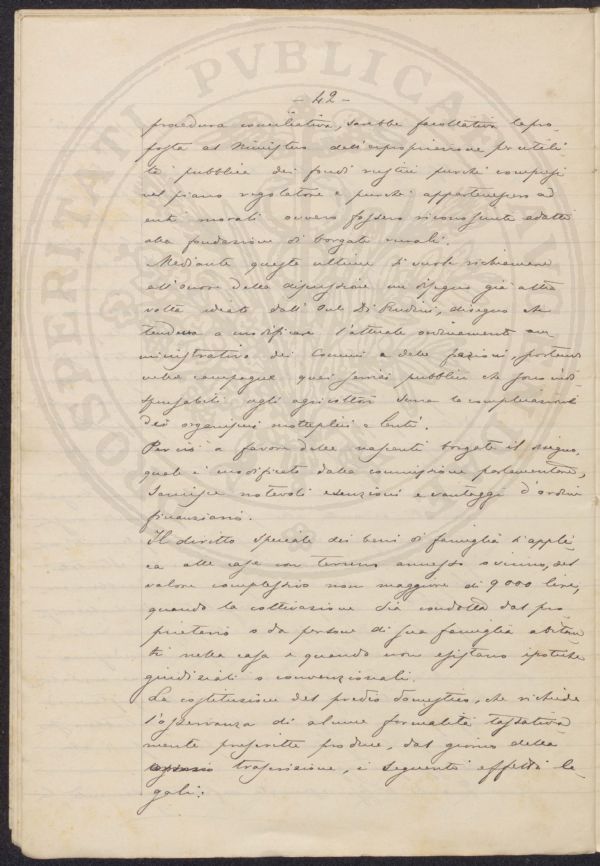 PROSPERITATI PVBLICAE
- 42 -
procedura conciliativa, sarebbe facoltativa la pro-
posta al Ministero dell'espropriazione per utili-
tà pubblica dei fondi rustici purché compresi
nel piano regolatore e purché appartenessero ad
enti morali ovvero fossero riconosciuti adatti
alla fondazione di borgate rurali.
Mediante queste ultime si vuole richiamare
all'onore della discussione un disegno già altra
volta ideato dall'On. Di Rudinì, disegno che
tendeva a modificare l'attuale ordinamento am-
ministrativo dei Comuni e delle frazioni, portando
nelle campagne quei servizi pubblici che sono indi-
spensabili agli agricoltori senza la complicazione
di organismi molteplici e lenti.
Perciò a favore delle nascenti borgate il disegno,
quale è modificato dalla commissione parlamentare,
sancisce notevoli esenzioni e vantaggi d'ordine
finanziario.
Il diritto speciale dei beni di famiglia s'appli-
ca alle case con terreno annesso o vicino, del
valore complessivo non maggiore di 9000 lire,
quando la coltivazione sia condotta dal pro-
prietario o da persone di sua famiglia abitan-
ti nella casa e quando non esistano ipoteche
giudiziali o convenzionali.
La costituzione del predio domestico, che richiede
l'osservanza di alcune formalità tassativa-
mente prescritte produce, dal giorno della
trascrizione, i seguenti effetti le-
gali: